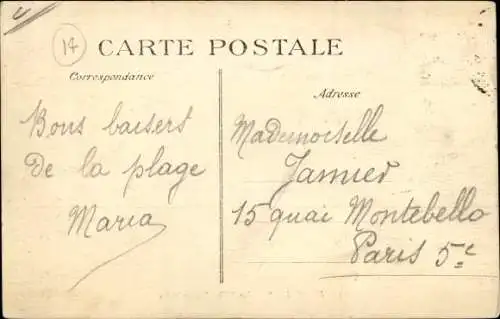 14
CARTE POSTALE
Correspondance
Bons baisers
De la plage
Maria
Adresse
Mademoiselle
Janier
15 quai Montebello
Paris 5e